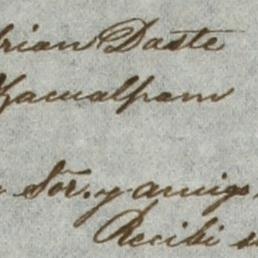 rian Daste
Zacualpam
Sór. y amigo
Recibi